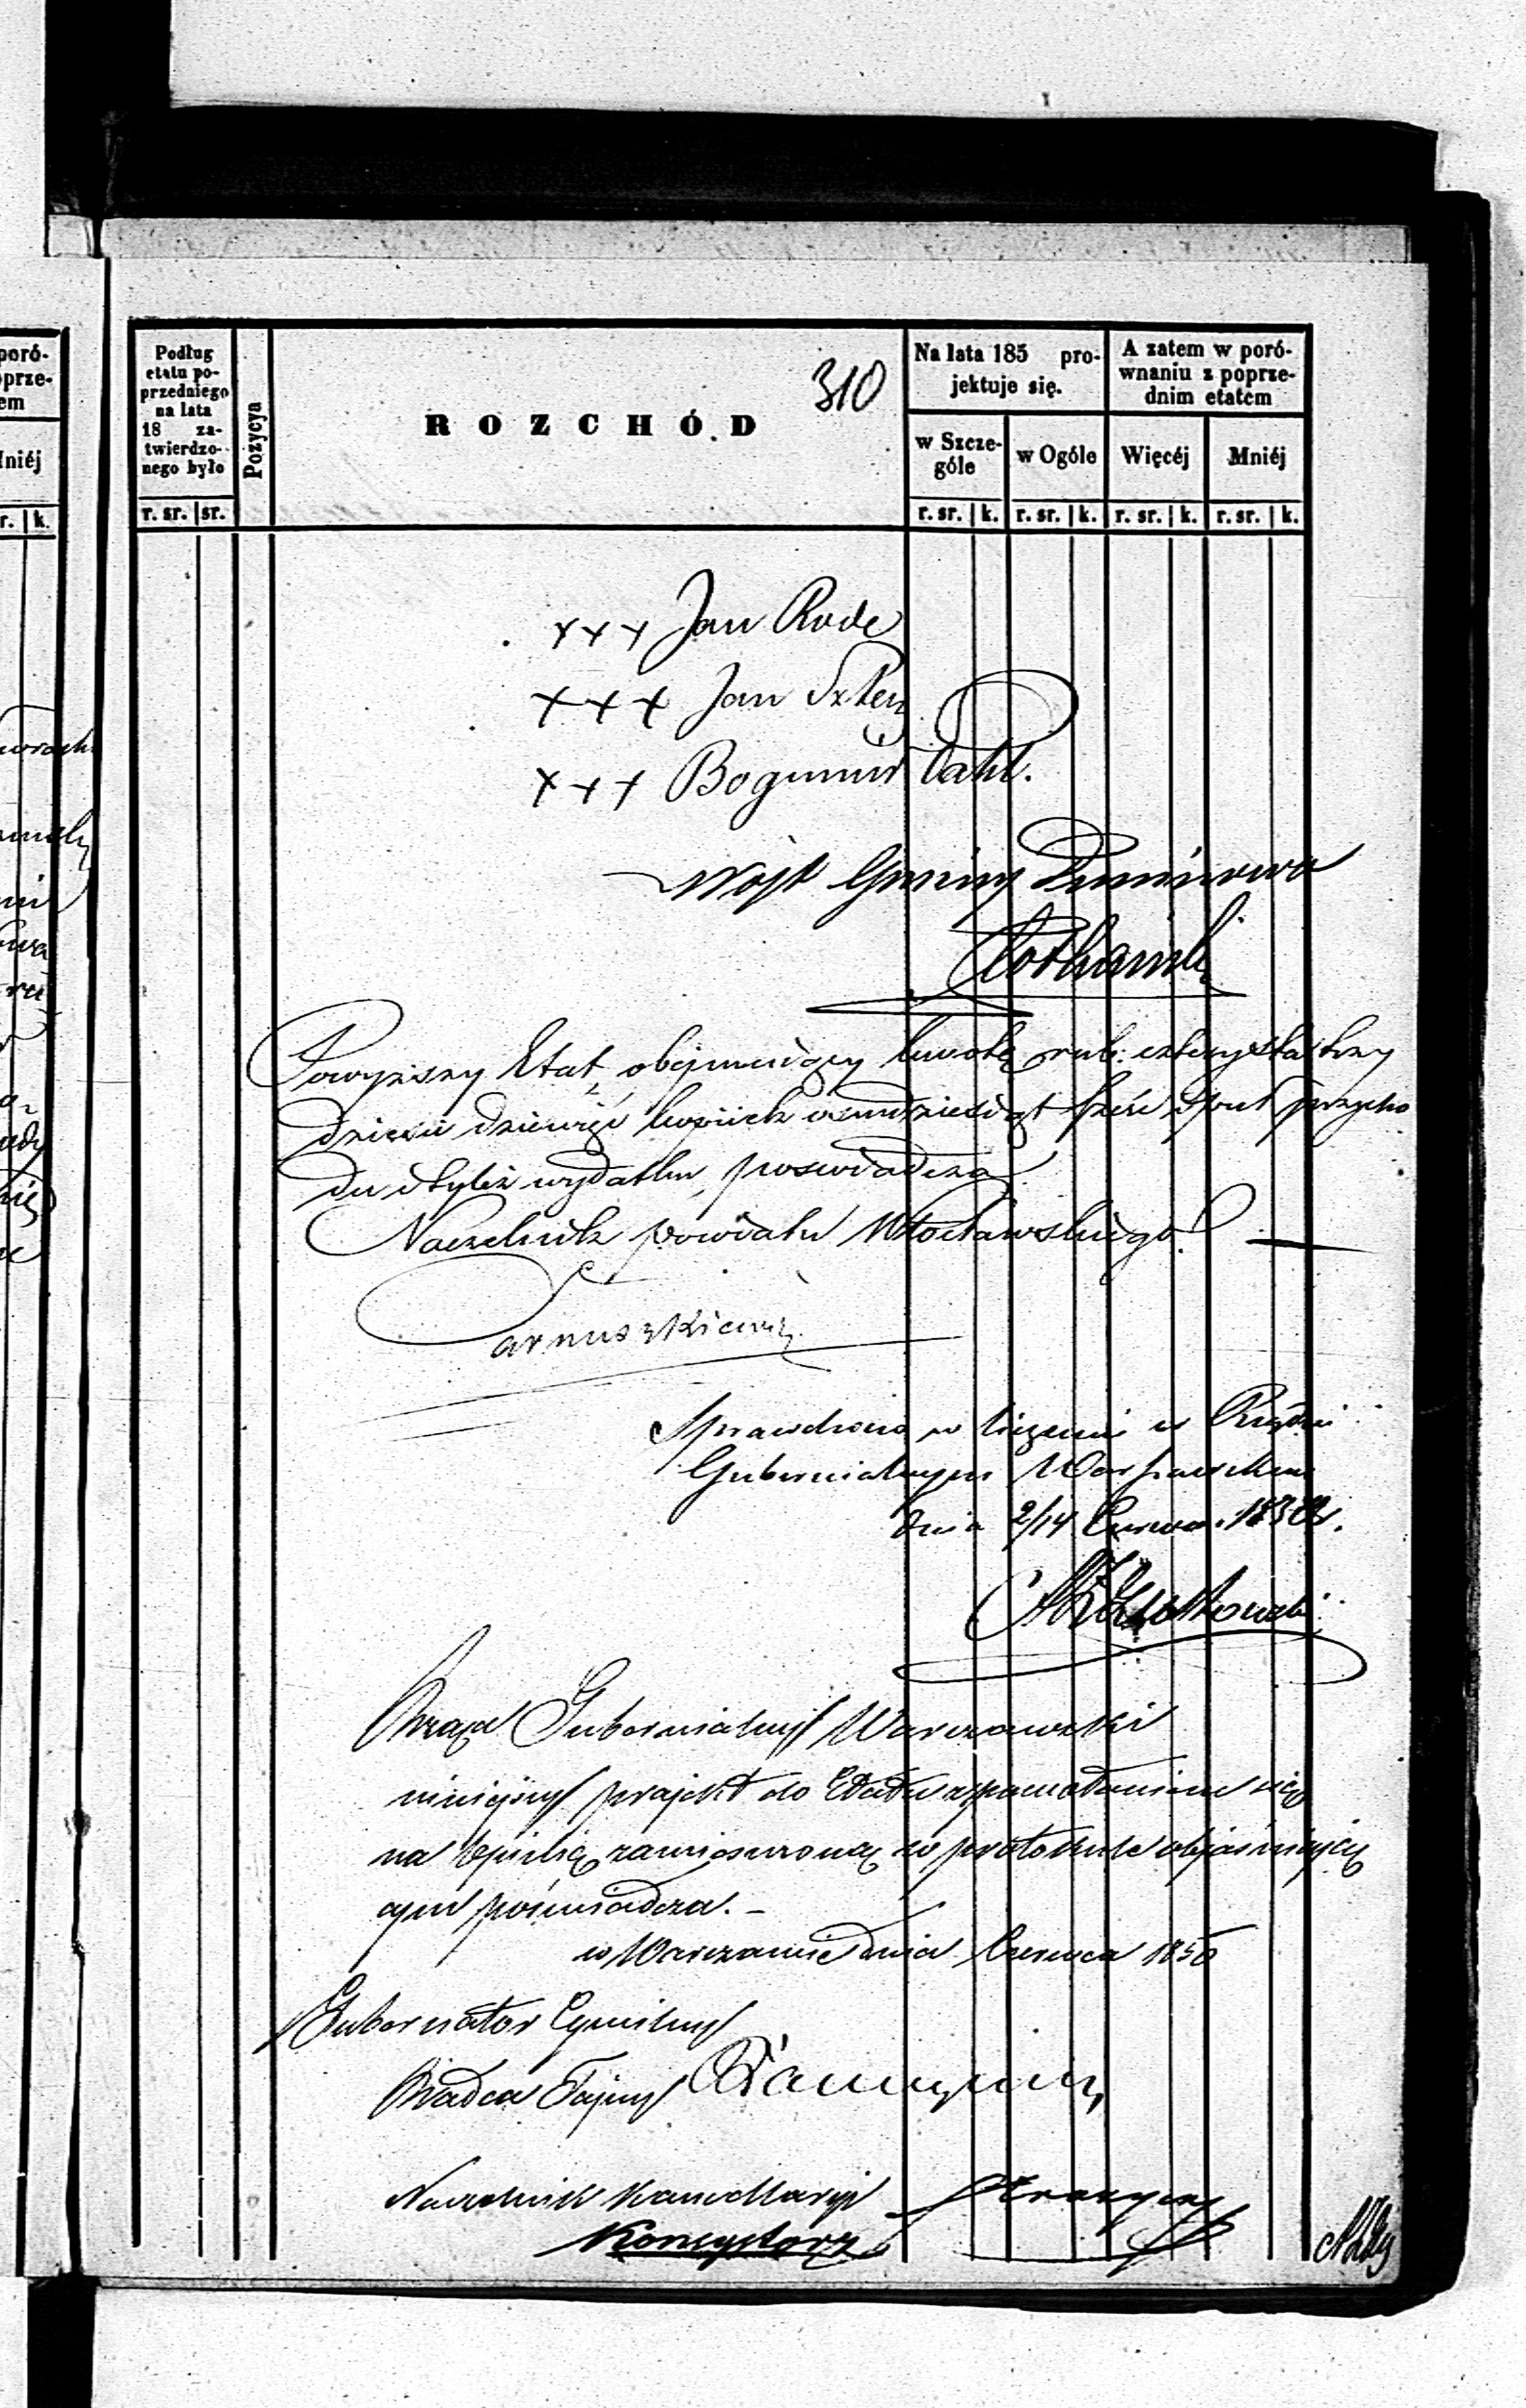 poró-
oprze-
em
Mniéj
r. k.
Podług
etatu po-
przedniego
na lata
18 za-
twierdzo-
nego było
r. sr. sr.
Pozycya
ROZCHÓD
310
Na lata 185 pro-
jektuje się.
w Szcze-
góle
w Ogóle
r. sr. k. r. sr. k.
A zatem w poró-
wnaniu z poprze-
dnim etatem
Więcéj Mniéj
r. sr. k. r. sr. k.
+++ Jan Rode
+++ Jan
+++ Bogumił Dahl.
Wójt Gminy
Powyższy Etat, obejmuiący kwotę rub. czterysta trzy
dzieści dziewięć kopiiek osmdziesiąt sześć przycho
du i tyleż wydatku, poswiadcza
Naczelnik powiatu Włocławskiego
Sprawdzono w liczeniu w Rządzie
Gubernialnym Warszawskim
dnia 2/14 Czerwca 1850 r.
Rząd Gubernialny Warszawski
niniejszy projekt do Etatu z powołaniem się
na zamieszczoną w protokule objaśniają
cym poświadcza. -
w Warszawie dnia Czerwca 1850
Gubernator Cywilny
Radca Tajny
Naczelnik Kancellaryi